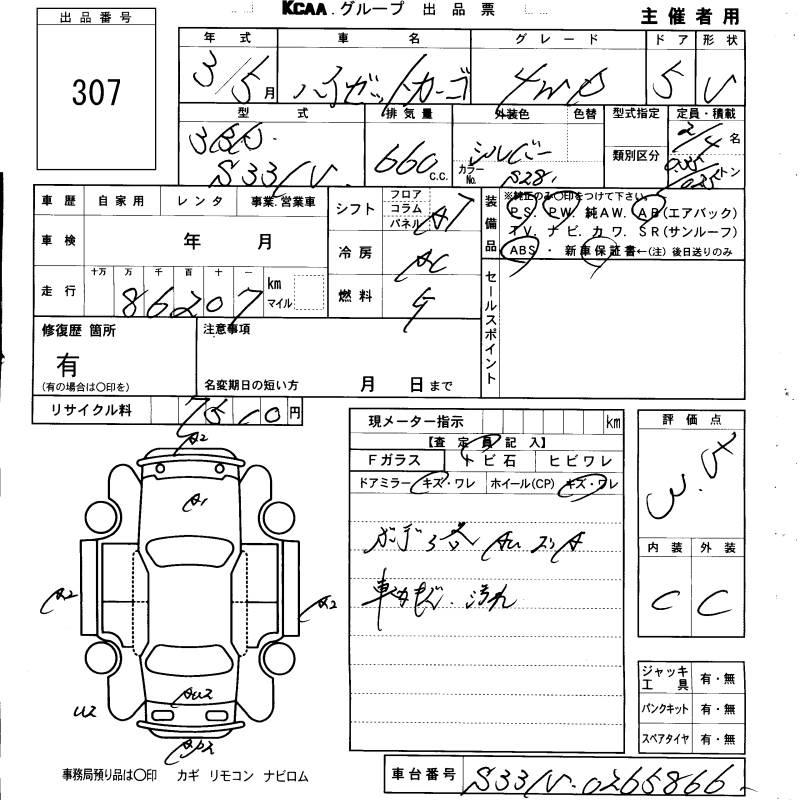 KCAA.グループ 出品票
主催者用
出品番号
307
年式 車名 グレード ドア 形状
3/5月 ハイゼットカーゴ 4WD 5 V
型式 排気量 外装色 色替 型式指定 定員・積載
類別区分
3BD-
S331V 660c.c. シルバー カラーNo. S28 2/4名
0.35/0.25トン
車歴 自家用 レンタ 事業.営業車
車検 年 月
走行 十万 万 千 百 十 一 km マイル
86207
シフト フロア コラム パネル AT
冷房 AC
燃料 ガ
装備品
※純正のみ〇印をつけて下さい。
P.S. P.W. 純A.W. A.B(エアバック)
T.V. ナビ. カワ. S.R(サンルーフ)
ABS ・ 新車保証書←(注)後日送りのみ
セールスポイント
修復歴 箇所
有
(有の場合は〇印を)
注意事項
名変期日の短い方 月 日まで
リサイクル料 7510円
現メーター指示 km
【査定員記入】
Fガラス トビ石 ヒビワレ
ドアミラー キズ・ワレ ホイール(CP) キズ・ワレ
ボデー各AUズA
車内コゲ・汚れ
評価点
3.5
内装 外装
C C
A2
A1
A2
A2
AU2
U2
ジャッキ工具 有・無
パンクキット 有・無
スペアタイヤ 有・無
事務局預り品は〇印 カギ リモコン ナビロム
車台番号 S331V-0265866